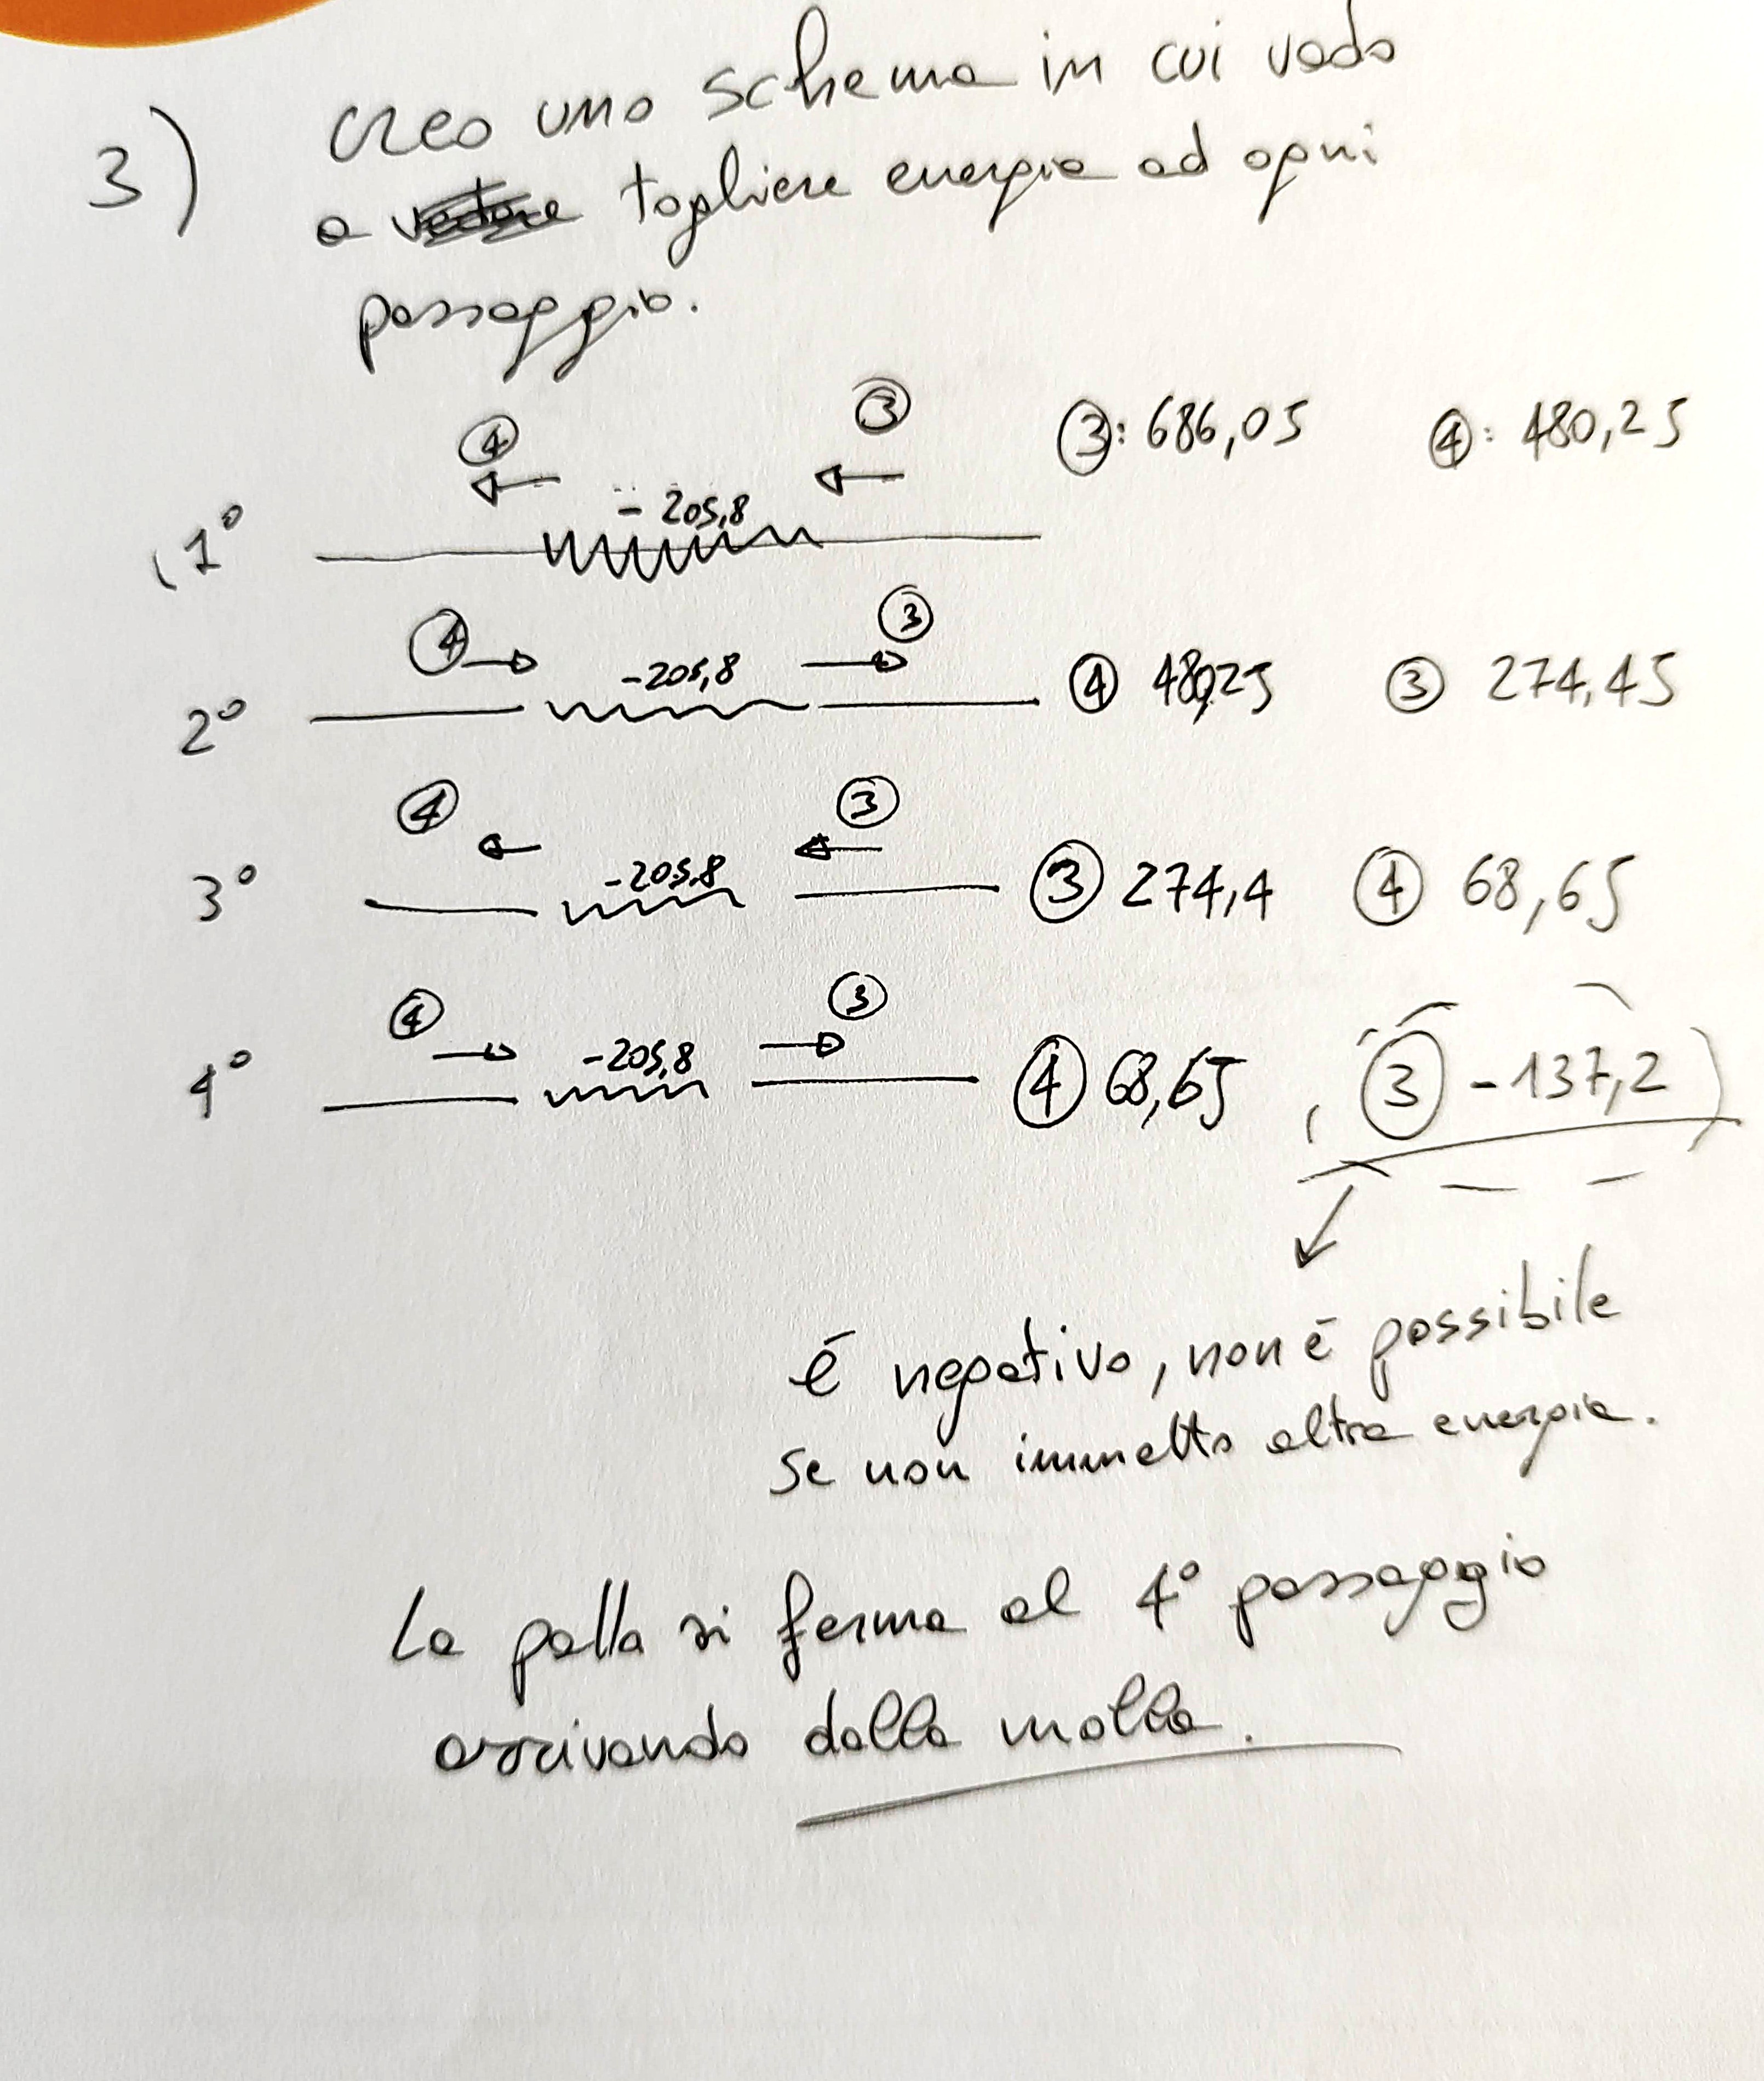 3) Creo uno schema in cui vado
a togliere energia ad ogni
passaggio.
④ ③ ③: 686,05 ④: 480,25
1° - 205,8
④ ③
2° -205,8 ④ 480,25 ③ 274,45
④ ③
3° -205,8 ③ 274,4 ④ 68,65
④ ③
4° -205,8 ④ 68,65 (③ -137,2)
é negativo, non é possibile
se non immetto altra energia.
La palla si ferma al 4° passaggio
arrivando dalla molla.